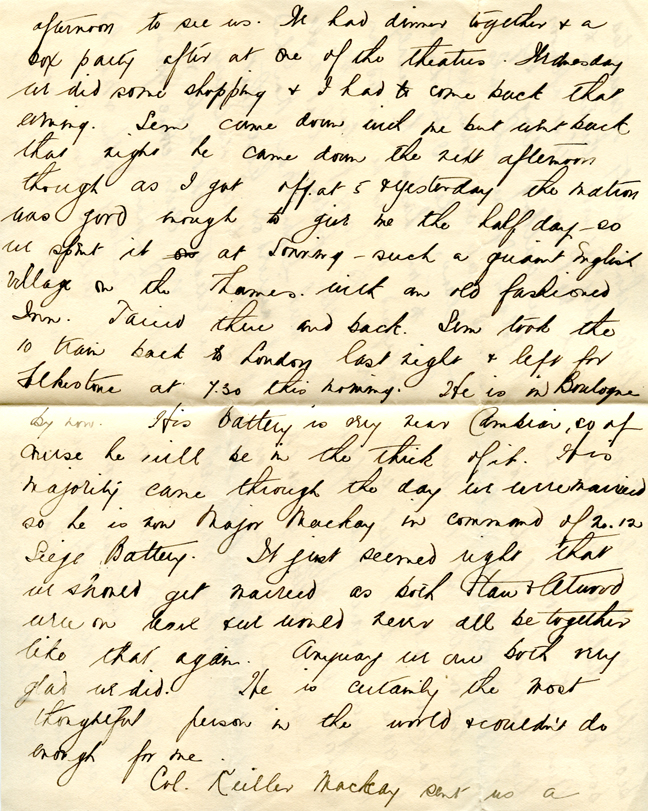 afternoon to see us. We had dinner together & a
box party after at one of the theatres. Wednesday
we did some shopping & I had to come back that
evening. Lem came down with me but went back
that night he came down the next afternoon
though as I got off at 5 & yesterday the matron
was good enough to give me the half day – so
we spent it at Sonning – such a quaint English
village on the Thames. with an old fashioned
Inn. Taxied there and back. Lem took the
10 train back to London last night & left for
Folkestone at 7.30 this morning. He is in Boulogne
by now. His Battery is very near Cambrai, so of
course he will be in the thick of it. His
majority came through the day we were married
so he is now Major Mackay in command of No. 12
Siege Battery. It just seemed right that
we should get married as both & Atwood
were on leave & we would never all be together
like that again. Anyway we are both very
glad we did. He is certainly the most
thoughtful person in the world & couldn't do
enough for me.
Col. Keiller Mackay sent us a